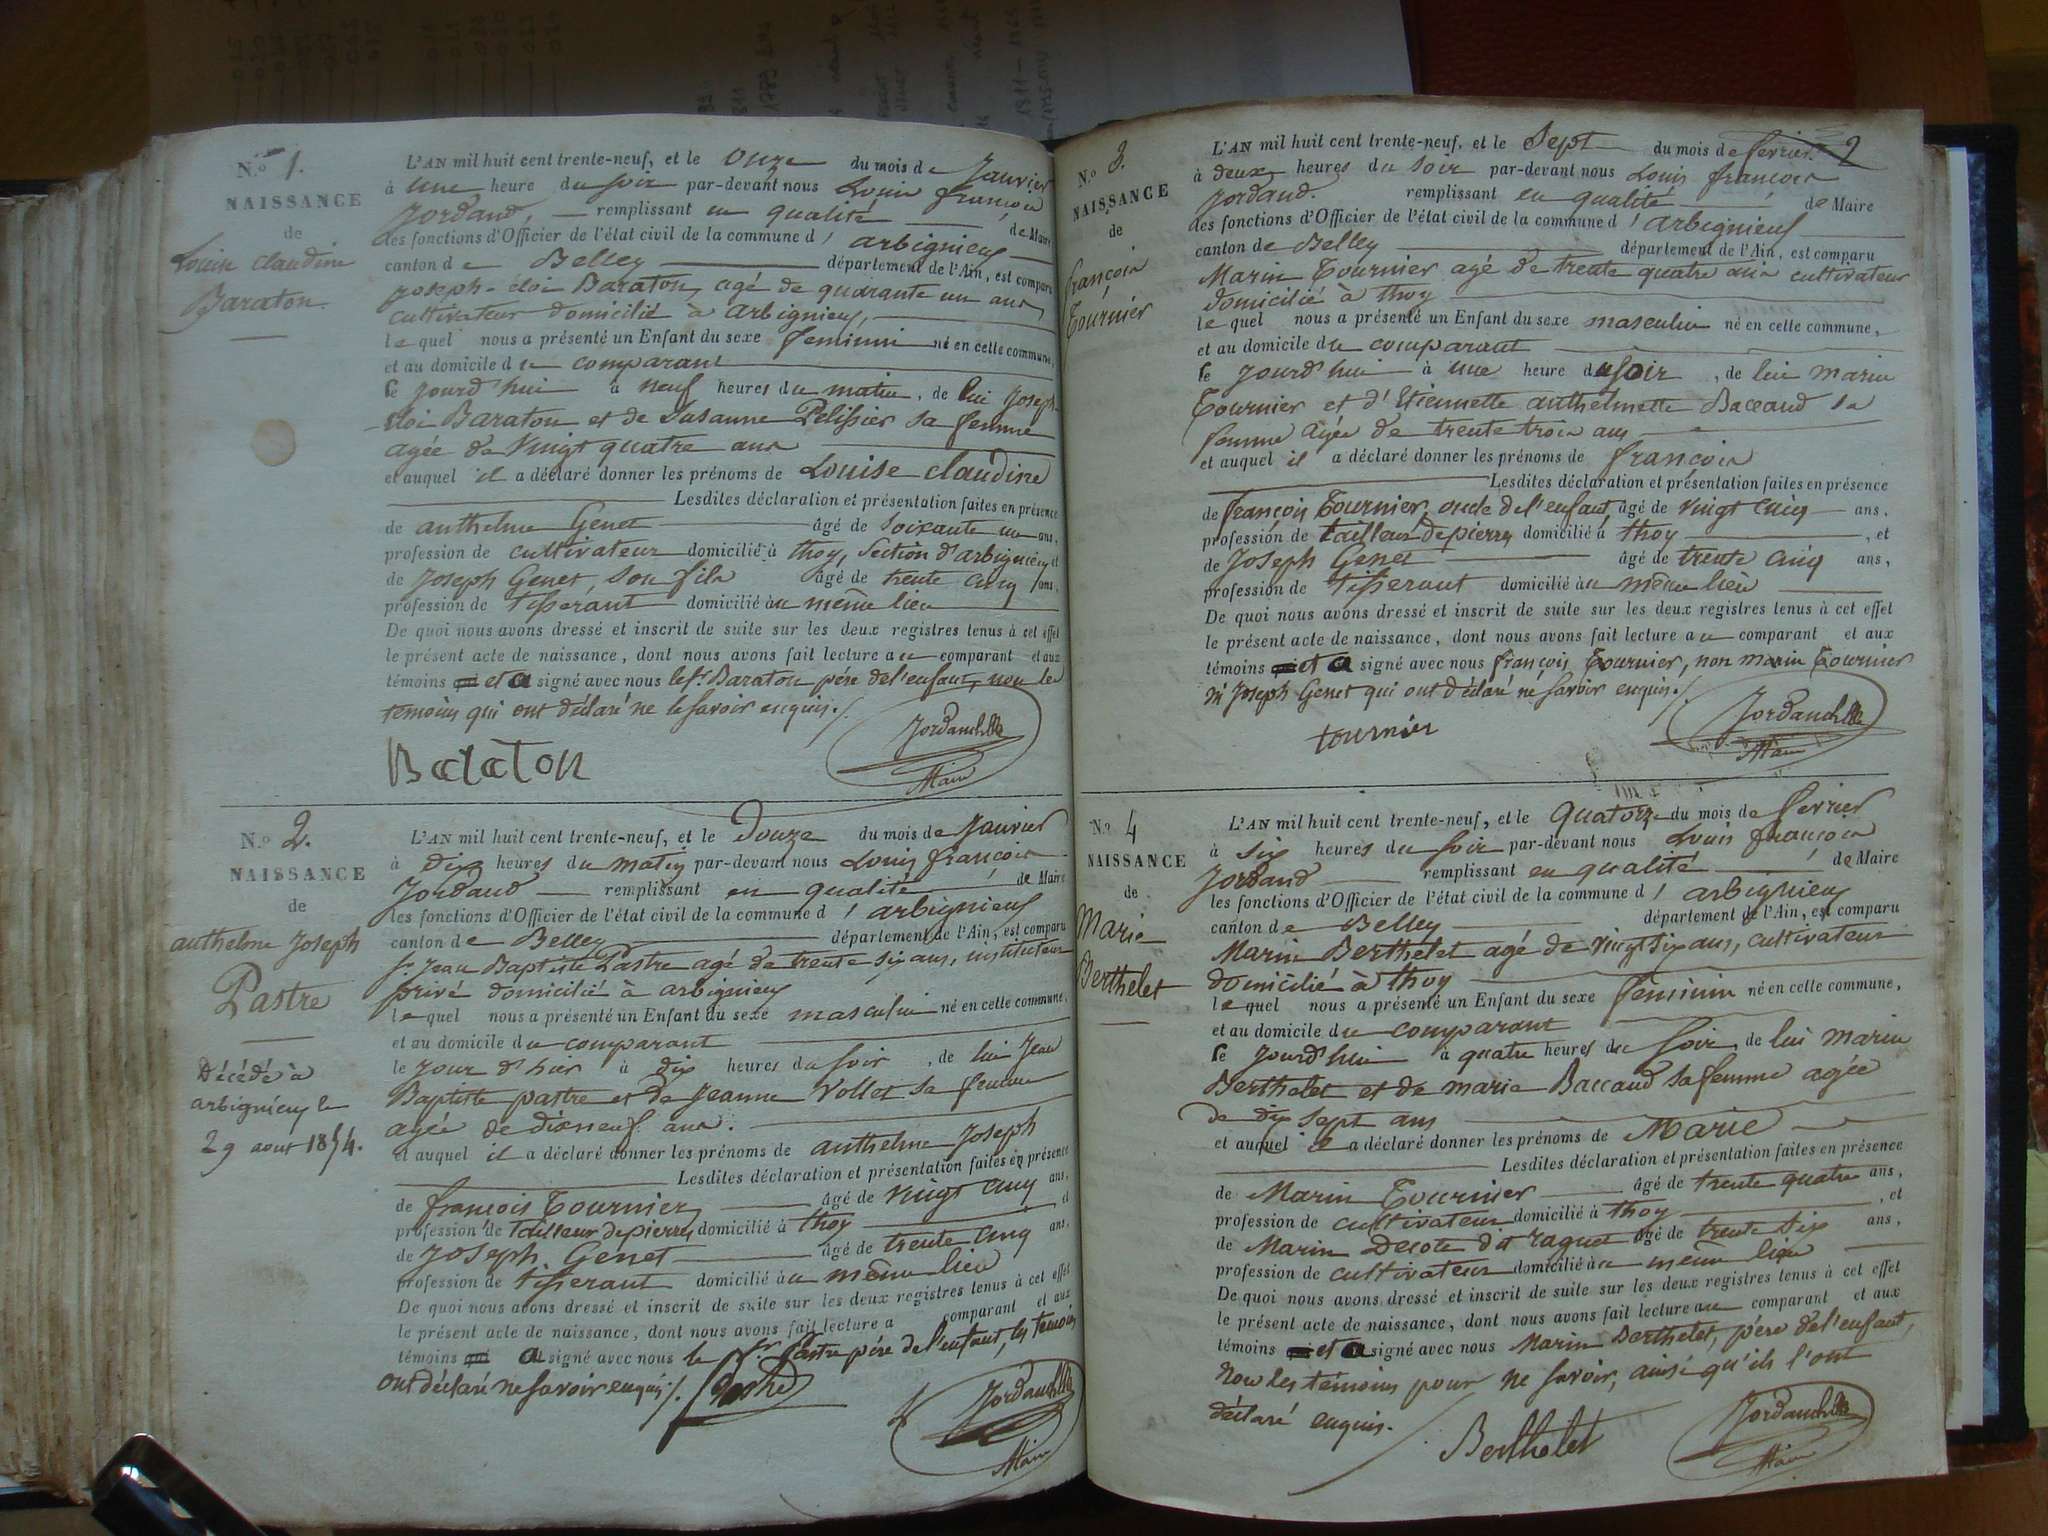 N.º 1.
NAISSANCE
de
Louise Claudine
Baraton
L'AN mil huit cent trente-neuf, et le Onze du mois de Janvier
à une heure du soir par-devant nous Louis françois
Jordand, remplissant en qualité de Maire
les fonctions d'Officier de l'état civil de la commune d'arbignieu
canton de Belley département de l'Ain, est comparu
Joseph-éloi Baraton, agé de quarante un ans,
cultivateur domicilié à arbignieu,
lequel nous a présenté un Enfant du sexe feminin né en cette commune,
et au domicile du comparant
le jourd'hui à neuf heures du matin, de lui Joseph-
éloi Baraton et de Susanne Pelissier sa femme
agée de Vingt quatre ans
et auquel il a déclaré donner les prénoms de Louise claudine
Lesdites déclaration et présentation faites en présence
de anthelme Genet âgé de soixante un ans,
profession de cultivateur domicilié à thoy, Section d'arbignieu, et
de Joseph Genet, son fils âgé de trente cinq ans,
profession de tisserant domicilié au même lieu
De quoi nous avons dressé et inscrit de suite sur les deux registres tenus à cet effet
le présent acte de naissance, dont nous avons fait lecture au comparant et aux
témoins qui et a signé avec nous le sr. Baraton père de l'enfant, non les
temoins qui ont déclaré ne le savoir enquis./.
Baraton
Jordand
Maire
N.º 2.
NAISSANCE
de
anthelme Joseph
Pastre
Décédé à
arbignieu le
29 aout 1854.
L'AN mil huit cent trente-neuf, et le Douze du mois de Janvier
à dix heures du matin par-devant nous Louis françois
Jordand remplissant en qualité de Maire
les fonctions d'Officier de l'état civil de la commune d'arbignieu
canton de Belley département de l'Ain, est comparu
sr. Jean Baptiste Pastre agé de trente six ans, instituteur
privé domicilié à arbignieu
lequel nous a présenté un Enfant du sexe masculin né en cette commune,
et au domicile du comparant
le jour d'hier à dix heures du soir, de lui Jean
Baptiste pastre et de Jeanne Vollet sa femme
agée de dixneuf ans.
et auquel il a déclaré donner les prénoms de anthelme Joseph
Lesdites déclaration et présentation faites en présence
de françois Tournier âgé de vingt cinq ans,
profession de tailleur de pierres domicilié à thoy, et
de Joseph Genet âgé de trente cinq ans,
profession de tisserant domicilié au même lieu
De quoi nous avons dressé et inscrit de suite sur les deux registres tenus à cet effet
le présent acte de naissance, dont nous avons fait lecture a comparant et aux
témoins qui a signé avec nous le sr. Pastre père de l'enfant, les temoins
ont déclaré ne savoir enquis./. Pastre
Jordand
Maire
2
N.º 3.
NAISSANCE
de
françois
Tournier
L'AN mil huit cent trente-neuf, et le Sept du mois de fevrier
à deux heures du soir par-devant nous Louis françois
Jordand. remplissant en qualité de Maire
les fonctions d'Officier de l'état civil de la commune d'arbignieu
canton de Belley département de l'Ain, est comparu
Marin Tournier agé de trente quatre ans cultivateur
domicilié à thoy
lequel nous a présenté un Enfant du sexe masculin né en cette commune,
et au domicile du comparant
le jourd'hui à une heure du soir, de lui marin
Tournier et d'Etiennette anthelmette Baccand sa
femme agée de trente trois ans
et auquel il a déclaré donner les prénoms de françois
Lesdites déclaration et présentation faites en présence
de françois Tournier, oncle de l'enfant, âgé de vingt cinq ans,
profession de tailleur de pierres domicilié à thoy, et
de Joseph Genet âgé de trente cinq ans,
profession de tisserant domicilié au même lieu
De quoi nous avons dressé et inscrit de suite sur les deux registres tenus à cet effet
le présent acte de naissance, dont nous avons fait lecture au comparant et aux
témoins qui et a signé avec nous françois Tournier, non marin Tournier
ni Joseph Genet qui ont déclaré ne savoir enquis./.
tournier
Jordand
Maire
N.º 4
NAISSANCE
de
Marie
Berthelet
L'AN mil huit cent trente-neuf, et le Quatorze du mois de fevrier
à six heures du soir par-devant nous Louis françois
Jordand remplissant en qualité de Maire
les fonctions d'Officier de l'état civil de la commune d'arbignieu
canton de Belley département de l'Ain, est comparu
Marin Berthelet agé de vingt six ans, cultivateur
domicilié à thoy
lequel nous a présenté un Enfant du sexe féminin né en cette commune,
et au domicile du comparant
le jourd'hui à quatre heures du soir, de lui marin
Berthelet et de marie Baccand sa femme agée
de dix sept ans
et auquel il a déclaré donner les prénoms de Marie
Lesdites déclaration et présentation faites en présence
de Marin Tournier âgé de trente quatre ans,
profession de cultivateur domicilié à thoy, et
de Marin Decote dit raquet âgé de trente six ans,
profession de cultivateur domicilié au même lieu
De quoi nous avons dressé et inscrit de suite sur les deux registres tenus à cet effet
le présent acte de naissance, dont nous avons fait lecture au comparant et aux
témoins qui et a signé avec nous Marin Berthelet, père de l'enfant,
non les témoins pour ne savoir, ainsi qu'ils l'ont
déclaré enquis.
Berthelet
Jordand
Maire